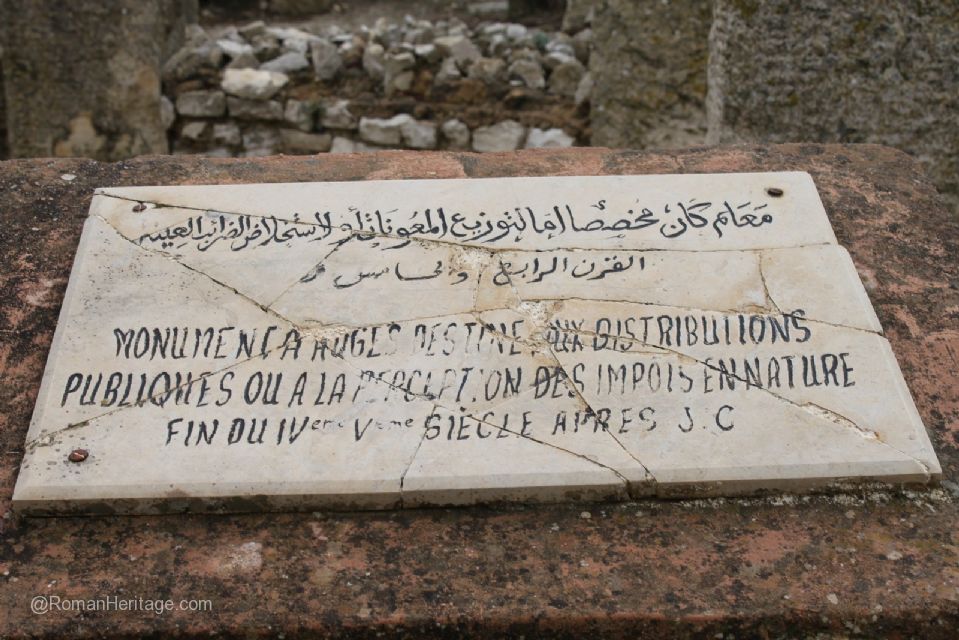 معالم كان مخصصا اما لتوزيع المعونات أو لاستخلاص الضرائب العينية
القرن الرابع والخامس م
MONUMENT A AUGES DESTINE AUX DISTRIBUTIONS
PUBLIQUES OU A LA PERCEPTION DES IMPOTS EN NATURE
FIN DU IVeme Veme SIÈCLE APRES J.C
@RomanHeritage.com